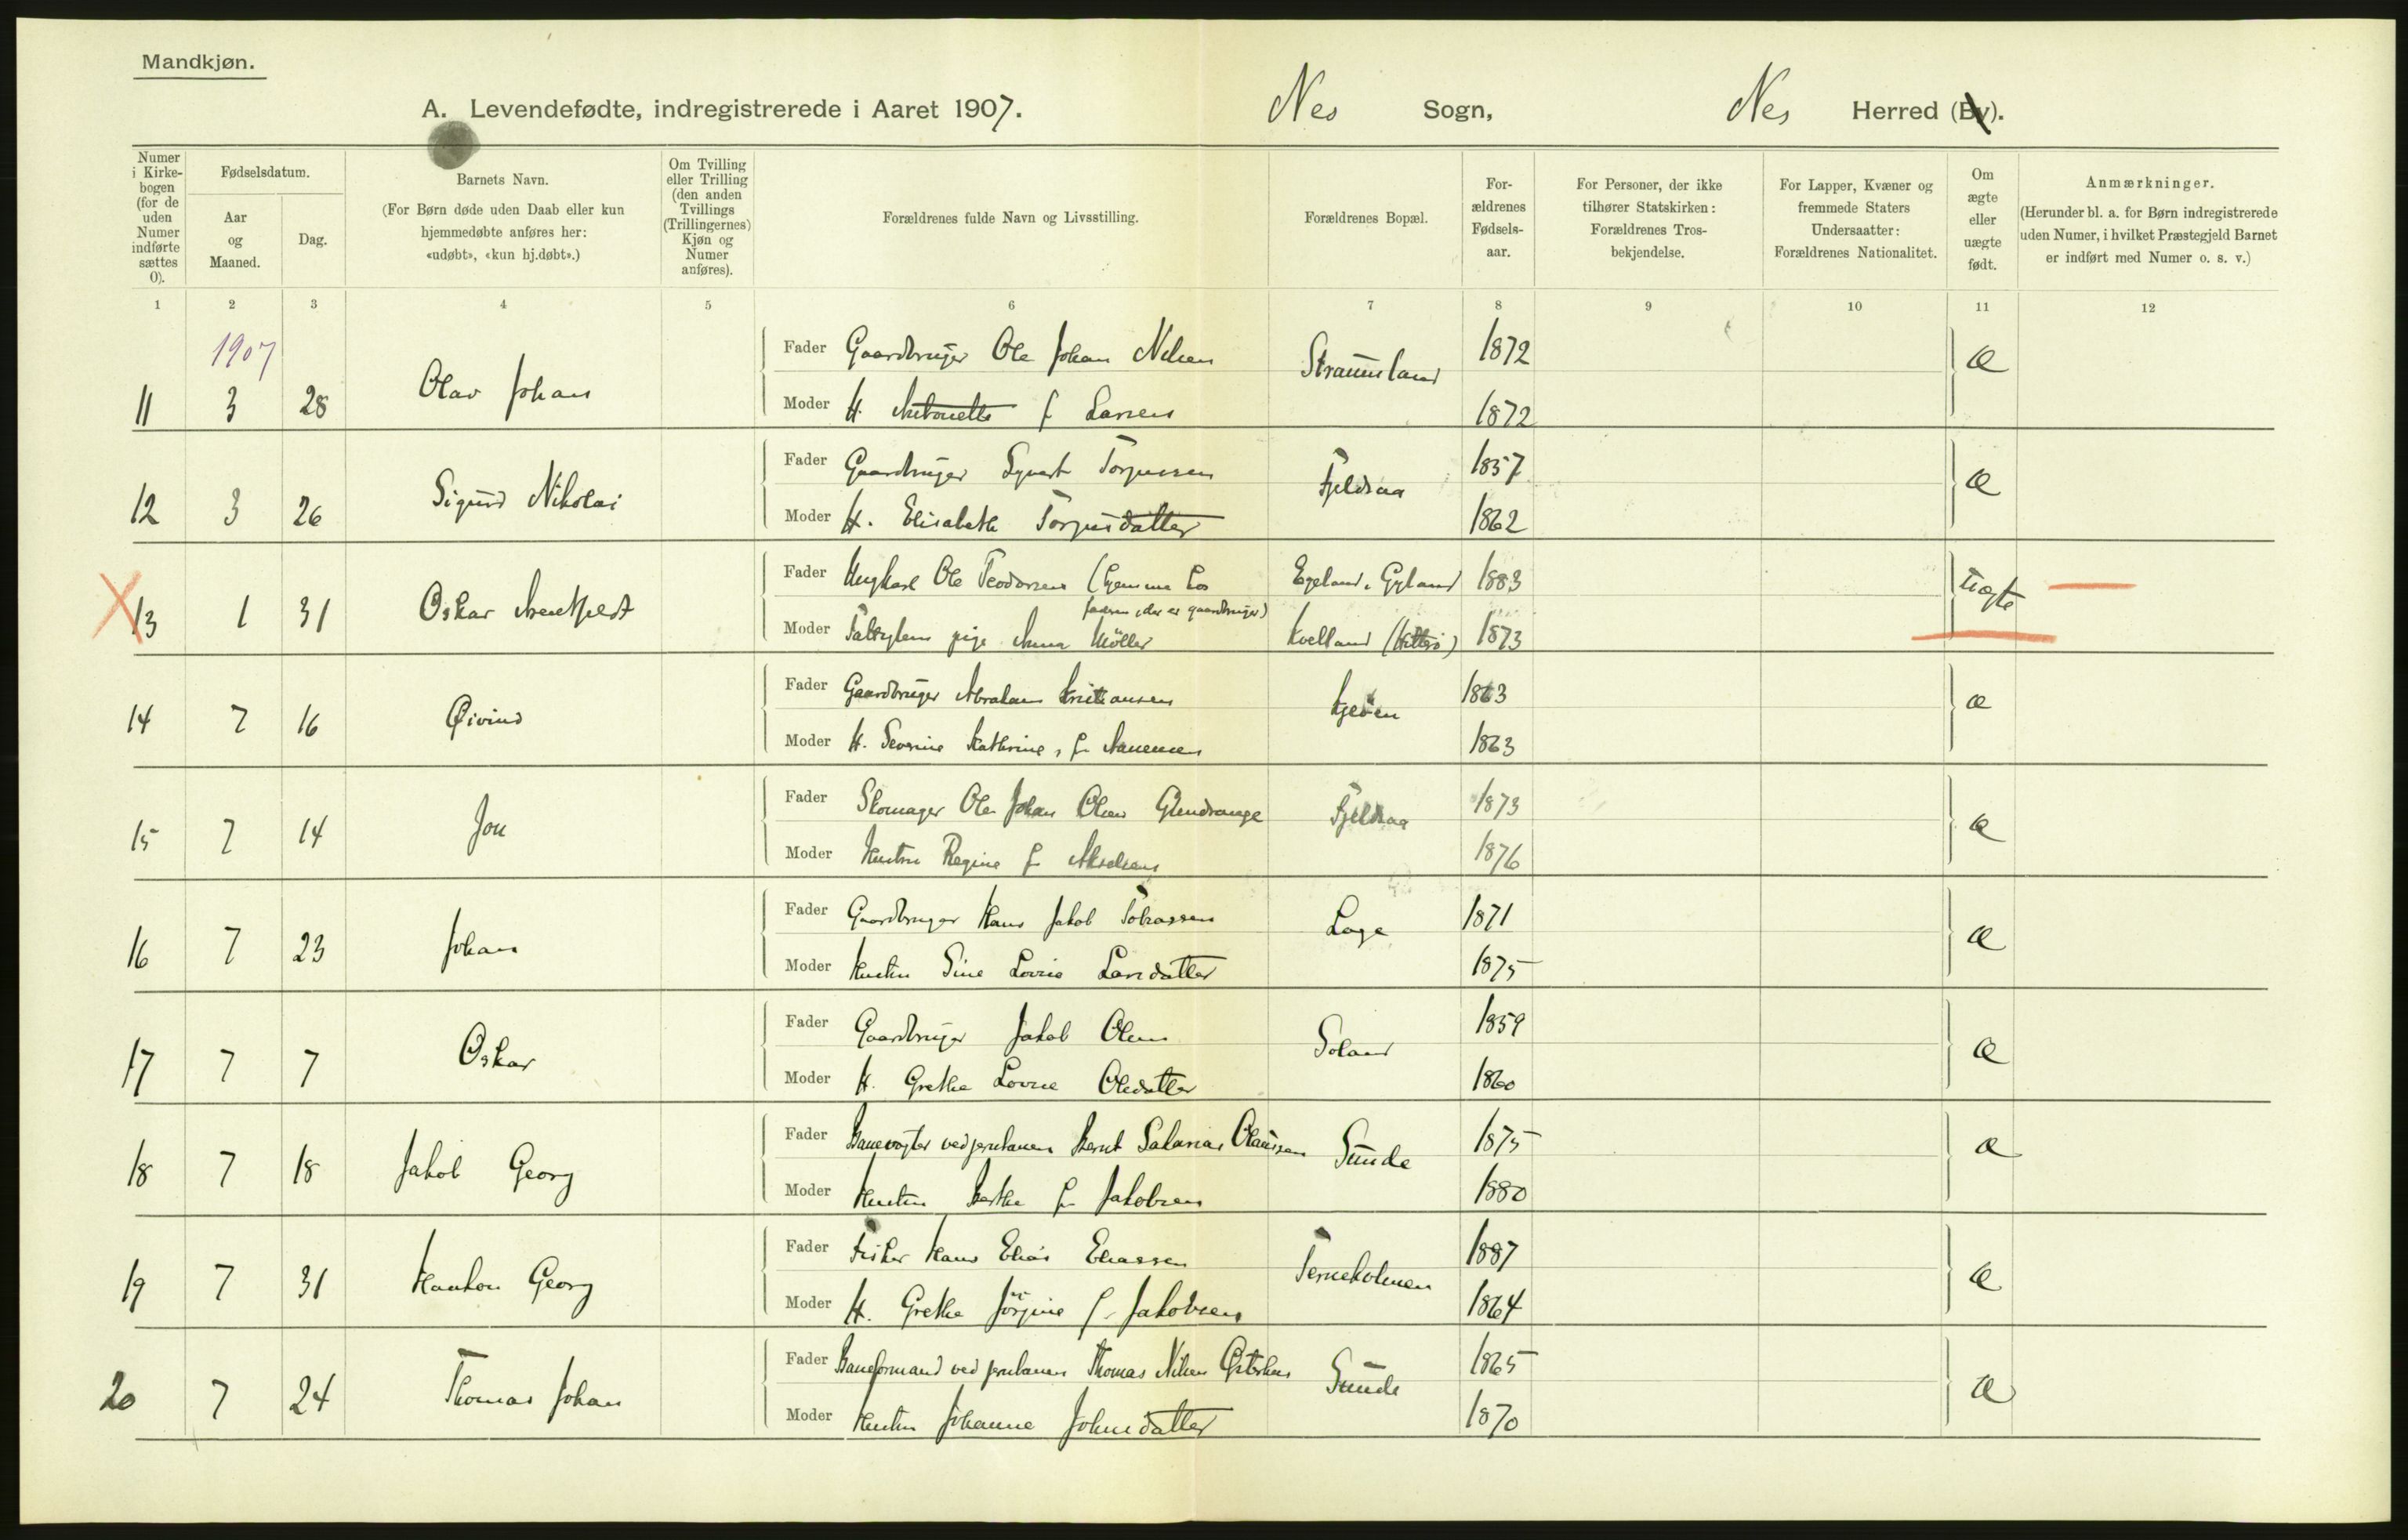 Mandkjøn.
A. Levendefødte, indregistrerede i Aaret 1907. Nes Sogn, Nes Herred (By).
Numer i Kirkebogen (for de uden Numer indførte sættes 0).
Fødselsdatum.
Aar og Maaned.
Dag.
Barnets Navn.
(For Børn døde uden Daab eller kun hjemmedøbte anføres her: «udøbt», «kun hj.døbt».)
Om Tvilling eller Trilling (den anden Tvillings (Trillingernes) Kjøn og Numer anføres).
Forældrenes fulde Navn og Livsstilling.
Forældrenes Bopæl.
Forældrenes Fødselsaar.
For Personer, der ikke tilhører Statskirken: Forældrenes Trosbekjendelse.
For Lapper, Kvæner og fremmede Staters Undersaatter: Forældrenes Nationalitet.
Om ægte eller uægte født.
Anmærkninger.
(Herunder bl. a. for Børn indregistrerede uden Numer, i hvilket Præstegjeld Barnet er indført med Numer o. s. v.)
1 2 3 4 5 6 7 8 9 10 11 12
1907
11 3 28 Olav Johan Fader Gaardbruger Ole Johan Nilsen Straumsland 1872 æ
Moder H. Antonette f Larsen 1872
12 3 26 Sigurd Nikolai Fader Gaardbruger Syvert Torjussen Fjeldsaa 1857 æ
Moder H. Elisabeth Torjusdatter 1862
13 1 31 Oskar Fader Ungkarl Ole Teodorsen (hjemme hos Egeland, Gyland 1883 uægte
faderen, der er gaardbruger)
Moder pige Anna Møller Kvelland (Hitterø) 1873
14 7 16 Øivind Fader Gaardbruger Abraham Kristiansen 1863 æ
Moder H. Severine Kathrine, f. 1863
15 7 14 Jon Fader Skomager Ole Johan Olsen Glendrange Fjeldsaa 1873 æ
Moder Hustru Regine f. Akselsen 1876
16 7 23 Johan Fader Gaardbruger Hans Jakob Tobiassen Loge 1871 æ
Moder Hustru Sine Lovise Larsdatter 1875
17 7 7 Oskar Fader Gaardbruger Jakob Olsen Soland 1859 æ
Moder H. Grethe Lovise Olsdatter 1860
18 7 18 Jakob Georg Fader Banevogter ved jernbanen Bernt Salanias Olaussen Sunde 1875 æ
Moder Hustru Berthe f. Jakobsen 1880
19 7 31 Haakon Georg Fader Fisker Hans Elias Eliassen Terneholmen 1887 æ
Moder H. Grethe Jörgine f. Jakobsen 1864
20 7 24 Thomas Johan Fader Baneformand ved jernbanen Thomas Nilsen Østerhus Sunde 1865 æ
Moder Hustru Johanne Johnsdatter 1870